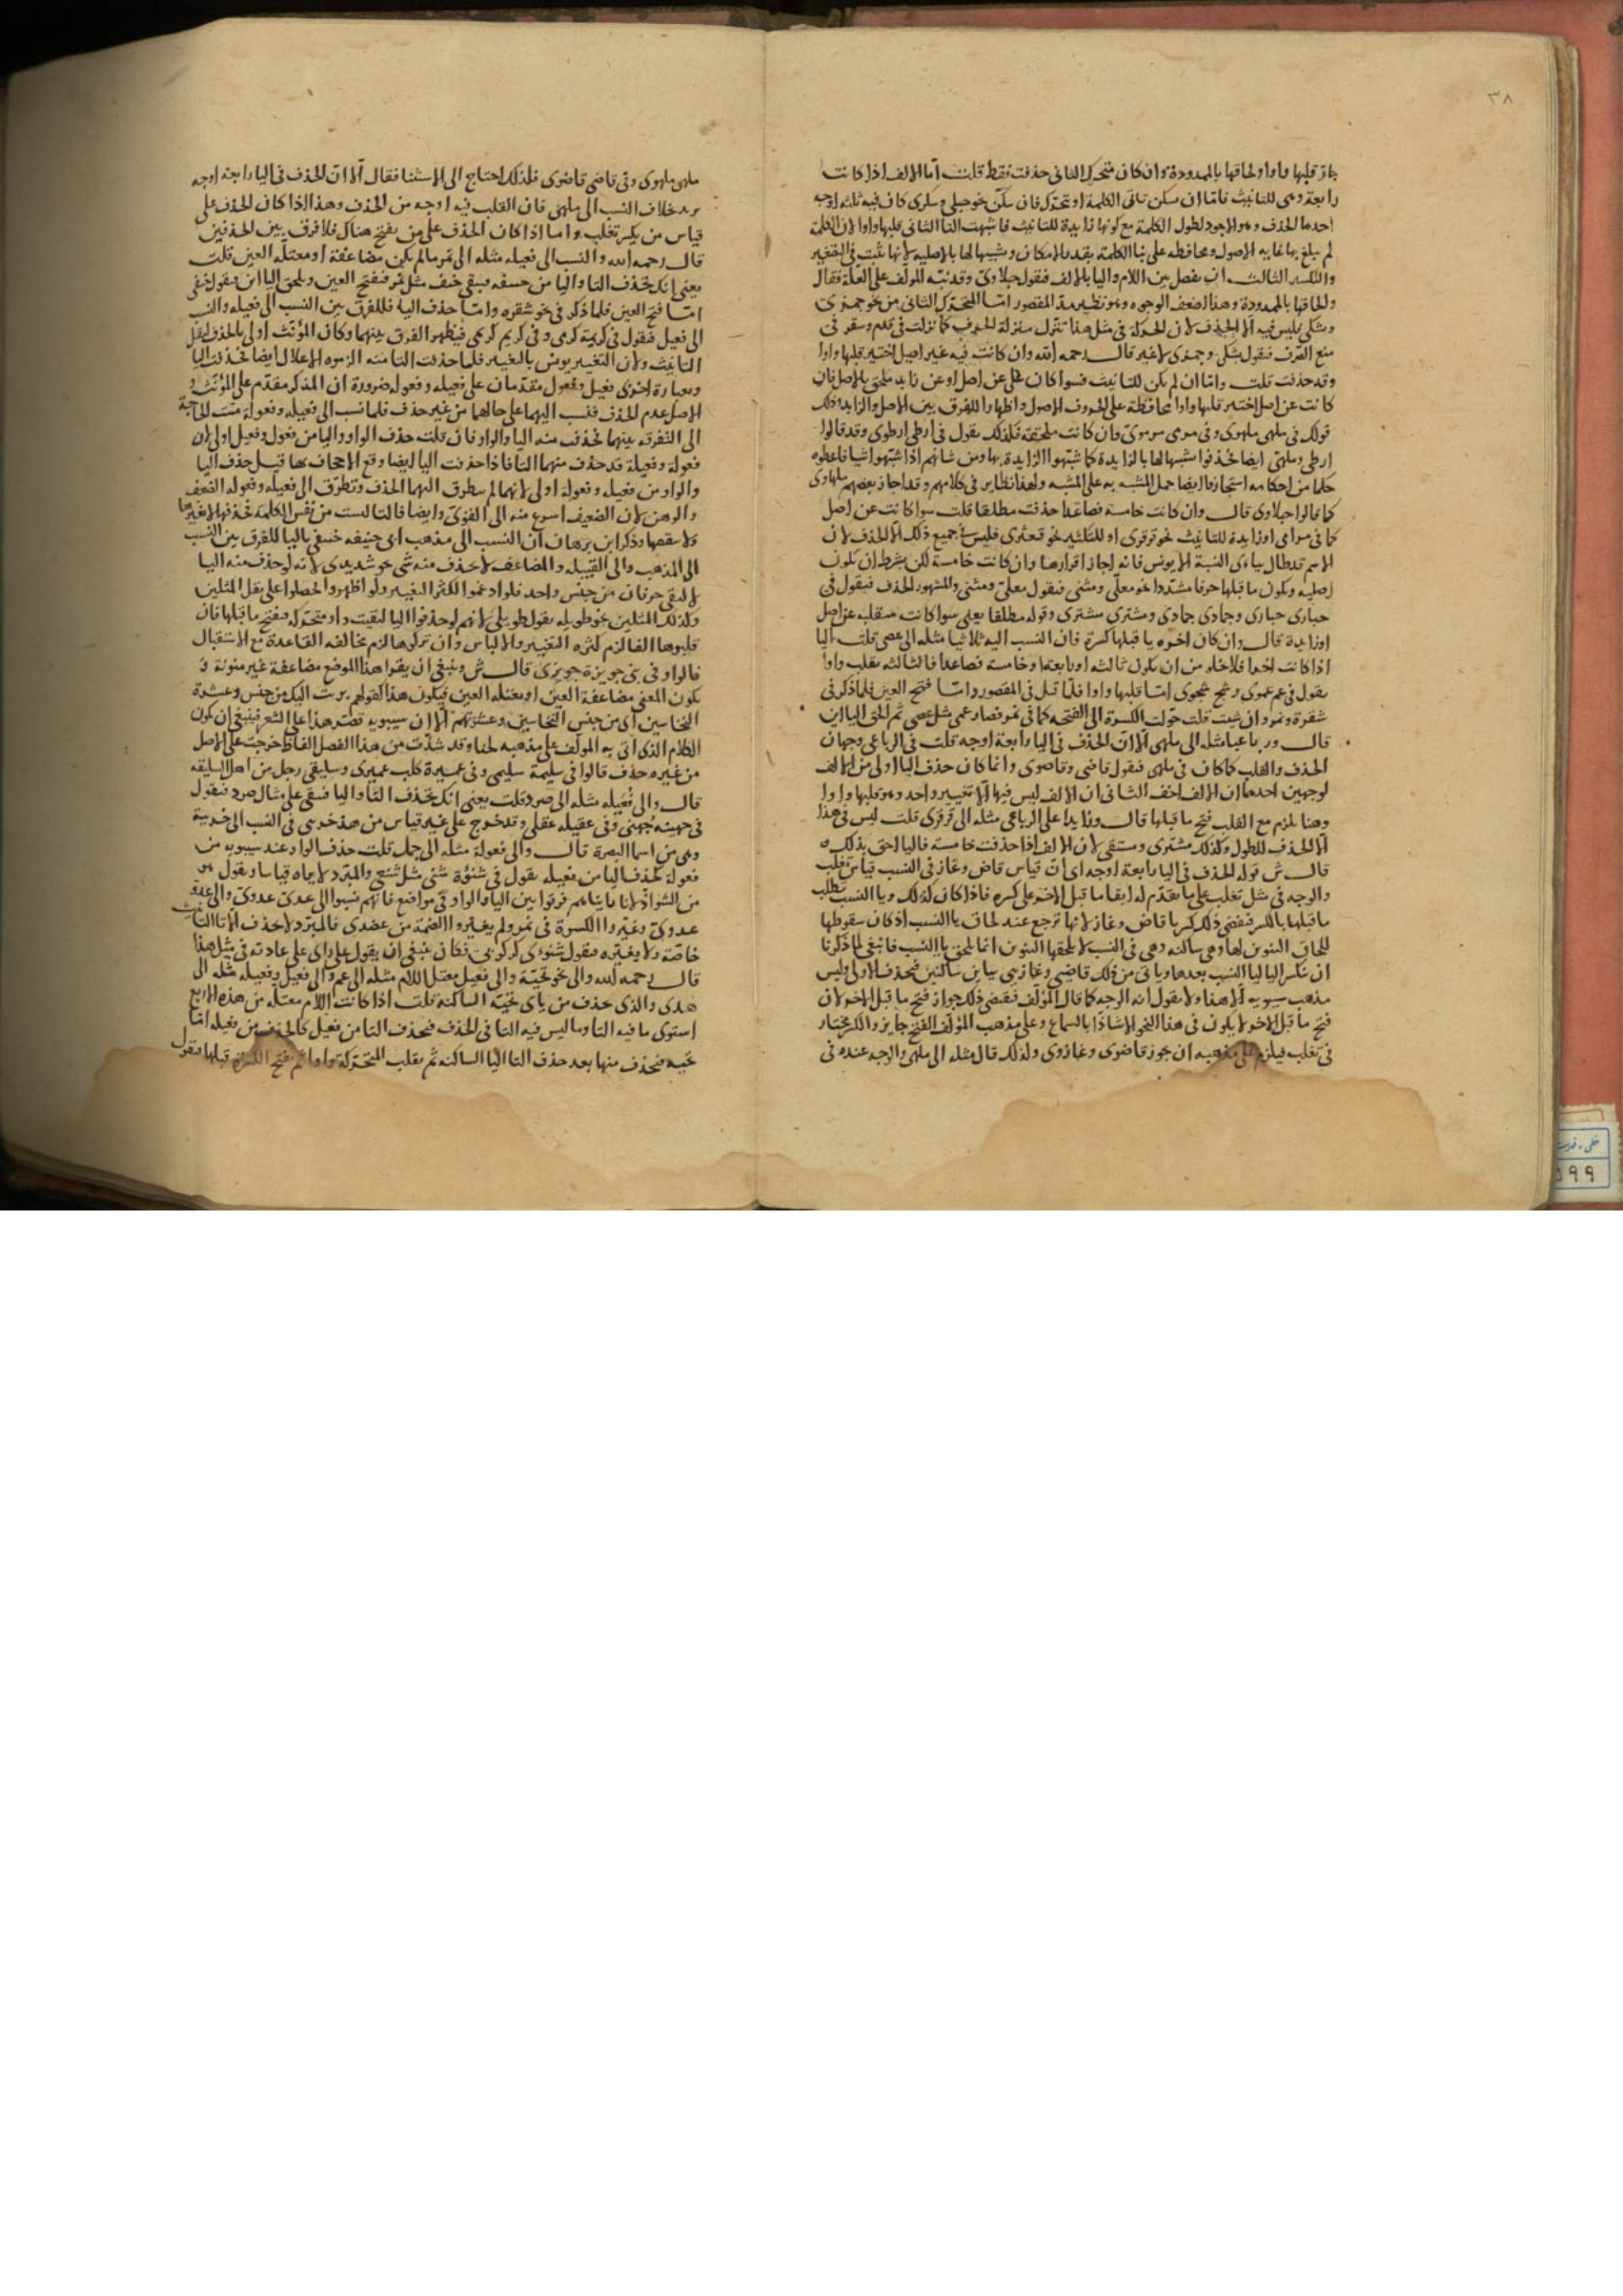 ٣٨
قلبها واوا ولحاقها بالممدودة وان كان متحرك الثانى حذفت فقط قلت اما الالف اذا كانت
رابعة وهى للتانيث فاما ان سكن ثانى الكلمة او تحرك فان سكن نحو حبلى وسكرى كان فيه ثلثة اوجه
احدها الحذف وهو الاجود لطول الكلمة مع كونها زايدة للتانيث فاشبهت التا الثانى قلبها واوا لان الكلمة
لم يبلغ بها غايه الاصول ومحافظه على بنا الكلمة بقدر الامكان وتشبيها لها بالاصليه لانها تثبت فى التصغير
والتكسير الثالث ان يفصل بين اللام واليا بالالف فتقول حبلاوى وقد نبه المولف على العلة فقال
ولحاقها بالممدودة وهذا اضعف الوجوه وهو نظير مد المقصور اما المتحرك الثانى من نحو جمزى
وبشكى فليس فيه الا الحذف لان الحركة فى مثل هذا تتنزل منزلة الحرف كما نزلت فى قدم وسقر فى
منع الصرف فتقول بشكى وجمزى لا غير قال رحمه الله وان كانت فيه غير اصل اختير قلبها واوا
وقد حذفت قلت واما ان لم يكن للتانيث فسوا كان على عن اصل او عن زايد ملحق بالاصل فان
كانت عن اصل اختير قلبها واوا محافظة على الحروف الاصول واظهارا للفرق بين الاصل والزايد وذلك
قولك فى ملهى ملهوى وفى مرمى مرموى وان كانت ملحقة فلذلك يقول فى ارطى ارطوى وقد قالوا
ارطى وملهى ايضا فحذفوا تشبيها لها بالزايدة كما شبهوا الزايدة بها ومن شانهم اذا شبهوا شيا فاعطوه
حكما من احكامه استجازوا ايضا حمل المشبه به على المشبه ولهذا نظاير فى كلامهم وقد اجاز بعضهم ملهاوى
كما قالوا حبلاوى قال وان كانت خامسة فصاعدا حذفت مطلقا قلت سوا كانت عن اصل
كما فى مرامى او زايدة للتانيث نحو قرقرى او للتكثير نحو قبعثرى فليس فى جميع ذلك الا الحذف لان
الاسم قد طال بياءى النسبة الا يونس فانه اجاز اقرارها وان كانت خامسة لكن بشرط ان يكون
اصليه ويكون ما قبلها حرفا مشددا نحو معلى ومثنى فتقول معلى ومثنى والمشهور الحذف فتقول فى
حبارى حبارى وجمادى جمادى ومشترى مشترى وقوله مطلقا يعنى سوا كانت منقلبه عن اصل
او زايدة قال وان كان اخره يا قبلها كسرة فان النسب اليه ثلاثيا مثله الى عصى قلت اليا
اذا كانت اخرا فلا تخلو من ان يكون ثالثه او رابعة او خامسة فصاعدا فالثالثه تقلب واوا
يقول فى عم عموى وشج شجوى اما قلبها واوا فلما قيل فى المقصور واما فتح العين فلما ذكر فى
شقرة ونمر وان شيت قلت حولت الكسرة الى الفتحه كما فى نمر فصار عمى مثل عصى ثم الحق اليااين
قال ورباعيا مثله الى ملهى الا ان الحذف فى اليا رابعة اوجه قلت فى الرباعى وجهان
الحذف والقلب كما كان فى ملهى فتقول قاضى وقاضوى وانما كان حذف اليا اولى من الالف
لوجهين احدهما ان الالف اخف الثانى ان الالف ليس فيها الا تغيير واحد وهو قلبها واوا
وهنا يلزم مع القلب فتح ما قبلها قال وزايدا على الرباعى مثله الى قرقرى قلت ليس فى هذا
الا الحذف للطول وكذلك مشترى ومستقى لان الالف اذا حذفت خامسة فاليا احق بذلك
قال ش قوله الحذف فى اليا رابعة اوجه اى ان قياس قاض وغاز فى النسب قياس تغلب
والوجه فى مثل تغلب على ما تقدم له ابقا ما قبل الاخر على كسره فاذا كان كذلك ويا النسب تطلب
ما قبلها بالكسر فقضى ذلك كسر يا قاض وغاز لانها ترجع عند لحاق يا النسب اذ كان سقوطها
للحاق التنوين لها وهى ساكنه وهى فى النسب لا يلحقها التنوين انما يلحق يا النسب فانبغى لما ذكرنا
ان تكسر اليا ليا النسب بعدها وياتى من ذلك قاضيى وغازيى بياين ساكنين فحذف الاولى وليس
مذهب سيبويه الا هذا ولا يقول انه الوجه كما قال المولف فيقضى ذلك جواز فتح ما قبل الاخر لان
فتح ما قبل الاخر لا يكون فى هذا النحو الا شاذا بالسماع وعلى مذهب المولف الفتح جايز والكسر مختار
فى تغلب فيلزم على مذهبه ان يجوز قاضوى وغازوى ولذلك قال مثله الى ملهى والوجه عنده فى
ملهى ملهوى وفى قاضى قاضوى فلذلك احتاج الى الاستثنا فقال الا ان الحذف فى اليا رابعة اوجه
يريد خلاف النسب الى ملهى فان القلب فيه اوجه من الحذف وهذا اذا كان الحذف على
قياس من يكسر تغلب واما اذا كان الحذف على من يفتح هناك فلا فرق بين الحذفين
قال رحمه الله والنسب الى فعيله مثله الى نمر ما لم يكن مضاعفة او معتله العين قلت
يعنى انك تحذف التا واليا من حنيفه فيبقى حنف مثل نمر فتفتح العين ويلحق اليااين فتقول حنفى
اما فتح العين فلما ذكر فى نحو شقره واما حذف اليا فللفرق بين النسب الى فعيله والنسب
الى فعيل فتقول فى كريمة كرمى وفى كريم كريمى فيظهر الفرق بينهما وكان المونث اولى بالحذف لثقل
التانيث ولان التغيير يونس بالتغيير فلما حذفت التا منه الزموه الاعلال ايضا فحذفت اليا
وبعبارة اخرى فعيل وفعول مقدمان على فعيله وفعوله ضرورة ان المذكر مقدم على المونث و
الاصل عدم الحذف فنسب اليهما على حالهما من غير حذف فلما نسب الى فعيله وفعولة مست الحاجة
الى التفرقه بينهما فحذفت منه اليا والواو فان قلت حذف الواو واليا من فعول وفعيل اولى لان
فعولة وفعيلة قد حذف منهما التا فاذا حذفت اليا ايضا وقع الاجحاف بها قيل حذف اليا
والواو من فعيله وفعولة اولى لانهما لم يتطرق اليهما الحذف وتطرق الى فعيله وفعوله الضعف
والوهن لان الضعيف اسرع منه الى القوى وايضا فالتا ليست من نفس الكلمة فحذفها لا يغيرها
ولا ينقصها وذكر ابن برهان ان النسب الى مذهب ابى حنيفه حنيفى باليا للفرق بين النسب
الى المذهب والى القبيلة والمضاعف لا يحذف منه شى نحو شديدى لانه لو حذف منه اليا
لالتقى حرفان من جنس واحد فلو ادغموا لكثر التغيير ولو اظهروا لحصلوا على ثقل المثلين
وكذلك المثلين نحو طويله يقول طويلى لانهم لو حذفوا اليا لبقيت واو متحركه فيفتح ما قبلها فان
قلبوها الفا لزم كثره التغيير والالباس وان تركوها لزم مخالفه القاعدة مع الاستثقال
قالوا وفى بنى حويزة حويزى قال ش وينبغى ان يقرا هذا الموضع مضاعفة غير منونة و
يكون المعنى مضاعفة العين او معتله العين فيكون هذا كقولهم بريت اليك من خمس وعشرة
النخاسين اى من خمس النخاسين وعشرتهم الا ان سيبويه قصر هذا على الشعر فينبغى ان يكون
الكلام الذى اتى به المولف على مذهبه لحنا وقد شذت من هذا الفصل الفاظ خرجت على الاصل
من غير حذف قالوا فى سليمة سليمى وفى عميرة كلب عميرى وسليقى رجل من اهل السليقه
قال والى فُعيله مثله الى صرد قلت يعنى انك تحذف التا واليا فتبقى على مثال صرد فتقول
فى جهينه جهنى وفى عقيله عقلى وقد خرج على غير قياس من هذا خريبى فى النسب الى خريبة
وهى من اسما البصرة قال والى فعولة مثله الى جمل قلت حذف الواو عند سيبويه من
فعولة كحذف اليا من فعيله يقول فى شنوة شنئى مثل شنعى والمبرد لا يراه قياسا ويقول هو
من الشواذ لانا راينا هم فرقوا بين اليا والواو فى مواضع فانهم نسبوا الى عدى عدوى والى عدو
عدوى وغيروا الكسرة فى نمر ولم يغيروا الضمة من عضدى فالمبرد لا يحذف الا تا التانيث
خاصة ولا يغيره فتقول شنوى كركوبى فكان ينبغى ان يقول على راى على عادته فى مثل هذا
قال رحمه الله والى نحو تحية والى فعيل معتل اللام مثله الى عمر والى فعيل وفعيله مثله الى
هدى والذى حذف من ياى تحية الساكنة قلت اذا كانت اللام معتله من هذه الاربع
استوى ما فيه التا وما ليس فيه التا فى الحذف فحذف التا من فعيل كالحذف من فعيله اما
تحية فتحذف منها بعد حذف التا اليا الساكنه ثم تقلب المتحركة واوا ثم تفتح الكسرة قبلها فتقول